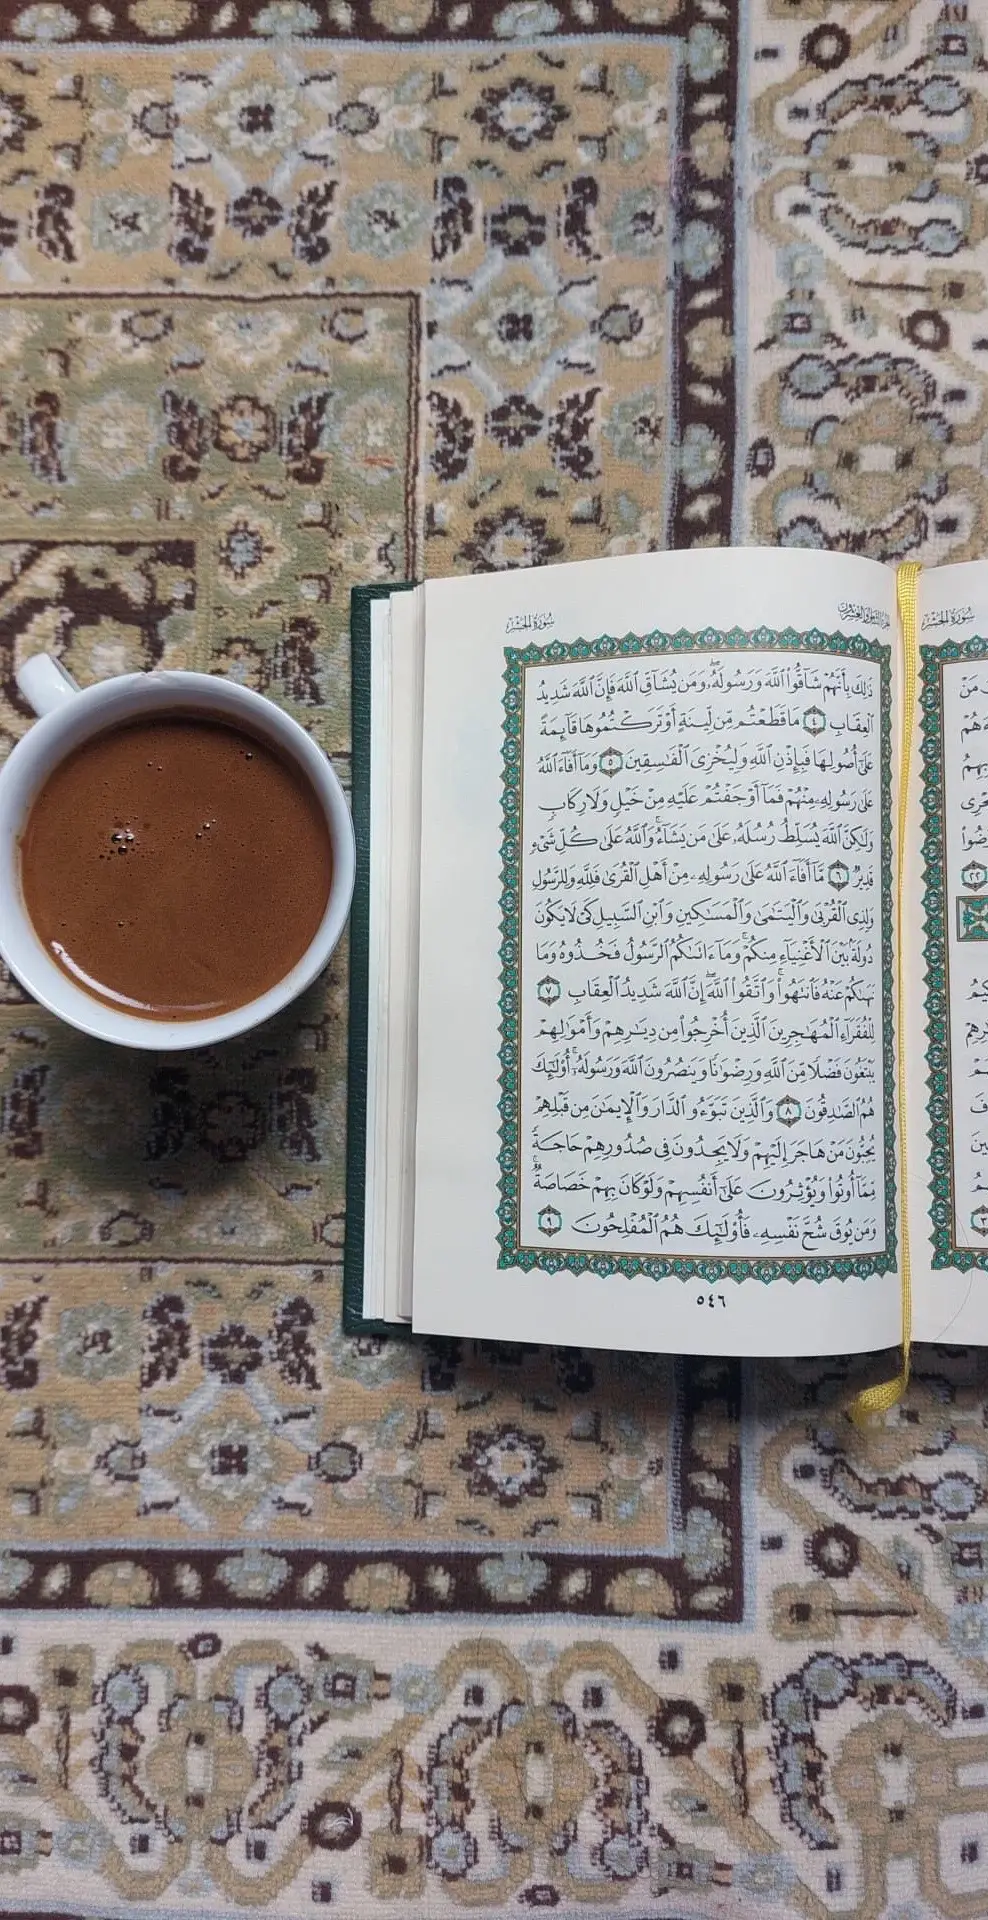 سُورَةُ الحَشْرِ
سُورَةُ الحَشْرِ
ذَٰلِكَ بِأَنَّهُمْ شَاقُّوا۟ ٱللَّهَ وَرَسُولَهُۥۖ وَمَن يُشَآقِّ ٱللَّهَ فَإِنَّ ٱللَّهَ شَدِيدُ
ٱلْعِقَابِ ٤ مَا قَطَعْتُم مِّن لِّينَةٍ أَوْ تَرَكْتُمُوهَا قَآئِمَةً
عَلَىٰٓ أُصُولِهَا فَبِإِذْنِ ٱللَّهِ وَلِيُخْزِىَ ٱلْفَـٰسِقِينَ ٥ وَمَآ أَفَآءَ ٱللَّهُ
عَلَىٰ رَسُولِهِۦ مِنْهُمْ فَمَآ أَوْجَفْتُمْ عَلَيْهِ مِنْ خَيْلٍ وَلَا رِكَابٍ
وَلَـٰكِنَّ ٱللَّهَ يُسَلِّطُ رُسُلَهُۥ عَلَىٰ مَن يَشَآءُۚ وَٱللَّهُ عَلَىٰ كُلِّ شَىْءٍ
قَدِيرٌ ٦ مَّآ أَفَآءَ ٱللَّهُ عَلَىٰ رَسُولِهِۦ مِنْ أَهْلِ ٱلْقُرَىٰ فَلِلَّهِ وَلِلرَّسُولِ
وَلِذِى ٱلْقُرْبَىٰ وَٱلْيَتَـٰمَىٰ وَٱلْمَسَـٰكِينِ وَٱبْنِ ٱلسَّبِيلِ كَىْ لَا يَكُونَ
دُولَةًۢ بَيْنَ ٱلْأَغْنِيَآءِ مِنكُمْۚ وَمَآ ءَاتَىٰكُمُ ٱلرَّسُولُ فَخُذُوهُ وَمَا
نَهَىٰكُمْ عَنْهُ فَٱنتَهُوا۟ۚ وَٱتَّقُوا۟ ٱللَّهَۖ إِنَّ ٱللَّهَ شَدِيدُ ٱلْعِقَابِ ٧
لِلْفُقَرَآءِ ٱلْمُهَـٰجِرِينَ ٱلَّذِينَ أُخْرِجُوا۟ مِن دِيَـٰرِهِمْ وَأَمْوَٰلِهِمْ
يَبْتَغُونَ فَضْلًا مِّنَ ٱللَّهِ وَرِضْوَٰنًا وَيَنصُرُونَ ٱللَّهَ وَرَسُولَهُۥٓۚ أُو۟لَـٰٓئِكَ
هُمُ ٱلصَّـٰدِقُونَ ٨ وَٱلَّذِينَ تَبَوَّءُو ٱلدَّارَ وَٱلْإِيمَـٰنَ مِن قَبْلِهِمْ
يُحِبُّونَ مَنْ هَاجَرَ إِلَيْهِمْ وَلَا يَجِدُونَ فِى صُدُورِهِمْ حَاجَةً
مِّمَّآ أُوتُوا۟ وَيُؤْثِرُونَ عَلَىٰٓ أَنفُسِهِمْ وَلَوْ كَانَ بِهِمْ خَصَاصَةٌۚ
وَمَن يُوقَ شُحَّ نَفْسِهِۦ فَأُو۟لَـٰٓئِكَ هُمُ ٱلْمُفْلِحُونَ ٩
٥٤٦